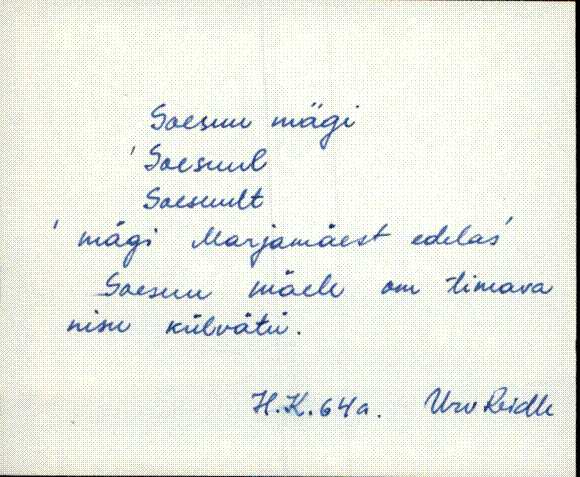 Soesuu mägi
'Soesuul
Soesuult
'mägi Marjamäest edelas'
Soesuu mäele om timava
nisu külvätü.
H.K. 64a. Urv Reidle